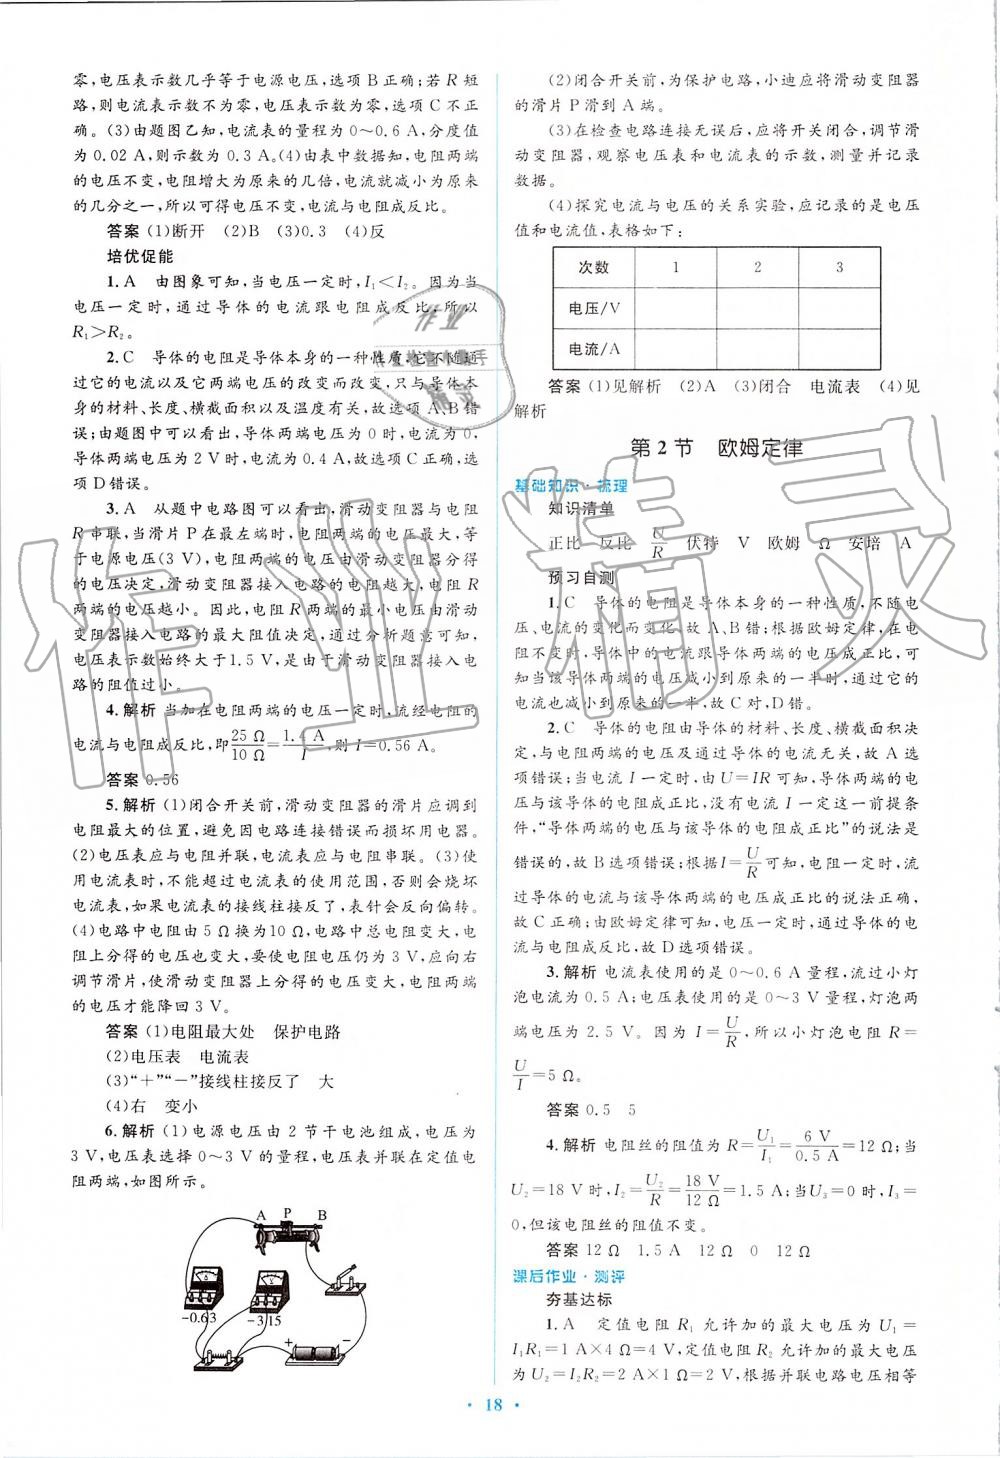 零,电压表示数几乎等于电源电压,选项B正确;若R短
路,则电流表示数不为零,电压表示数为零,选项C不正
确。(3)由题图乙知,电流表的量程为0~0.6 A,分度值
为0.02 A,则示数为0.3 A。(4)由表中数据知,电阻两端
的电压不变,电阻增大为原来的几倍,电流就减小为原来
的几分之一,所以可得电压不变,电流与电阻成反比。
答案 (1)断开 (2)B (3)0.3 (4)反
培优促能
1.A 由图象可知,当电压一定时,I₁<I₂。因为当
电压一定时,通过导体的电流跟电阻成反比,所以
R₁>R₂。
2.C 导体的电阻是导体本身的一种性质,它不随通
过它的电流以及它两端电压的改变而改变,只与导体本
身的材料、长度、横截面积以及温度有关,故选项A、B错
误;由题图中可以看出,导体两端的电压为0时,电流为0,
导体两端的电压为2 V时,电流为0.4 A,故选项C正确,选
项D错误。
3.A 从题中电路图可以看出,滑动变阻器与电阻
R串联,当滑片P在最左端时,R两端的电压最大,等
于电源电压(3 V),电阻两端的电压由滑动变阻器分得
的电压决定,滑动变阻器接入电路的电阻越大,电阻R
两端的电压越小。因此,电阻R两端的最小电压由滑动
变阻器接入电路的最大阻值决定,通过分析题意可知,
电压表示数始终大于1.5 V,是由于滑动变阻器接入电
路的阻值过小。
4.解析 当加在电阻两端的电压一定时,流经电阻的
电流与电阻成反比,即25 Ω/10 Ω=1.4 A/I,则I=0.56 A。
答案 0.56
5.解析 (1)闭合开关前,滑动变阻器的滑片应调到
电阻最大的位置,避免因电路连接错误而损坏用电器。
(2)电压表应与电阻并联,电流表应与电阻串联。(3)使
用电流表时,不能超过电流表的使用范围,否则会烧坏
电流表,如果电流表的接线柱接反了,表针会反向偏转。
(4)电路中电阻由5 Ω换为10 Ω,电路中总电阻变大,电
阻上分得的电压也变大,要使电阻电压仍为3 V,应向右
调节滑片,使滑动变阻器上分得的电压变大,电阻两端
的电压才能降回3 V。
答案 (1)电阻最大处 保护电路
(2)电压表 电流表
(3)“+”“-”接线柱接反了 大
(4)右 变小
6.解析 (1)电源电压由2节干电池组成,电压为
3 V,电压表选择0~3 V的量程,电压表并联在定值电
阻两端,如图所示。
A P B
A V
-0.63 -3 15
+ -
(2)闭合开关前,为保护电路,小迪应将滑动变阻器
的滑片P滑到A端。
(3)在检查电路连接无误后,应将开关闭合,调节滑
动变阻器,观察电压表和电流表的示数,测量并记录
数据。
(4)探究电流与电压的关系实验,应记录的是电压
值和电流值,表格如下:
次数 1 2 3
电压/V
电流/A
答案 (1)见解析 (2)A (3)闭合 电流表 (4)见
解析
第2节 欧姆定律
基础知识·梳理
知识清单
正比 反比 U/R 伏特 V 欧姆 Ω 安培 A
预习自测
1.C 导体的电阻是导体本身的一种性质,不随电
压、电流的变化而变化,故A、B错;根据欧姆定律,在电
阻不变时,导体中的电流跟导体两端的电压成正比,可
知当该导体两端的电压减小到原来的一半时,通过它的
电流也减小到原来的一半,故C对,D错。
2.C 导体的电阻由导体的材料、长度、横截面积决
定,与电阻两端的电压及通过导体的电流无关,故A选
项错误;当电流I一定时,由U=IR可知,导体两端的电
压与该导体的电阻成正比,没有电流I一定这一前提条
件,“导体两端的电压与该导体的电阻成正比”的说法是
错误的,故B选项错误;根据I=U/R可知,电阻一定时,流
过导体的电流与该导体两端的电压成正比的说法正确,
故C正确;由欧姆定律可知,电压一定时,通过导体的电
流与电阻成反比,故D选项错误。
3.解析 电流表使用的是0~0.6 A量程,流过小灯
泡电流为0.5 A;电压表使用的是0~3 V量程,灯泡两
端电压为2.5 V。因为I=U/R,所以小灯泡电阻R=
U/I=5 Ω。
答案 0.5 5
4.解析 电阻丝的阻值为R=U₁/I₁=6 V/0.5 A=12 Ω;当
U₂=18 V时,I₂=U₂/R=18 V/12 Ω=1.5 A;当U₃=0时,I₃=
0,但该电阻丝的阻值不变。
答案 12 Ω 1.5 A 12 Ω 0 12 Ω
课后作业·测评
夯基达标
1.A 定值电阻R₁允许加的最大电压为U₁=
I₁R₁=1 A×4 Ω=4 V,定值电阻R₂允许加的最大电压
为U₂=I₂R₂=2 A×1 Ω=2 V,根据并联电路电压相等
· 18 ·
作业精灵